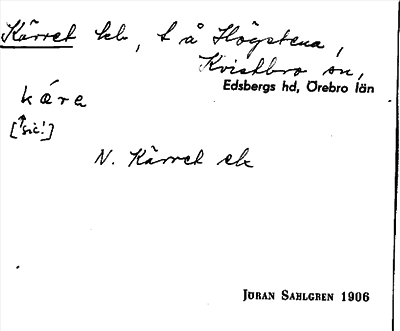 Kärret , t å Högstena,
Kvistbro sn,
Edsbergs hd, Örebro län
kára
[↑sic!]
N. Kärret
JÖRAN SAHLGREN 1906